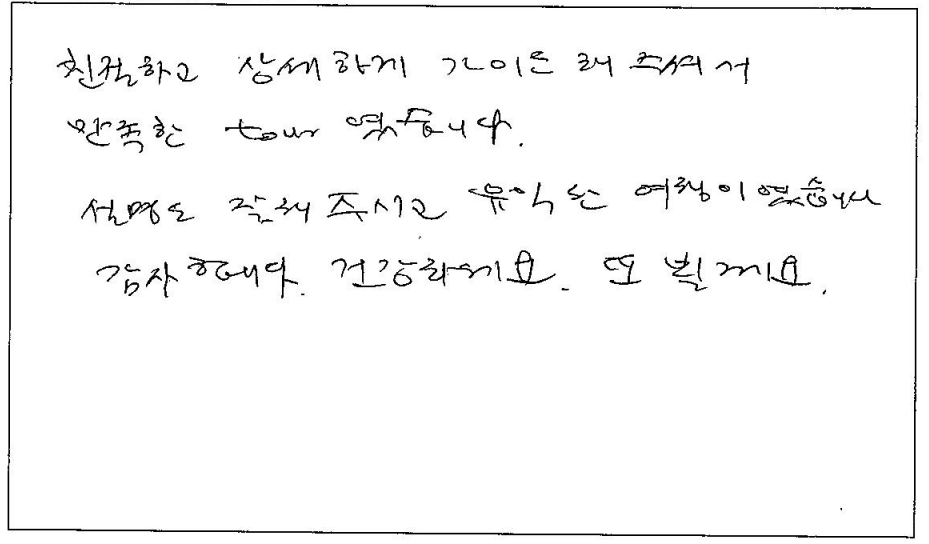 친절하고 상세하게 가이드 해 주셔서
만족한 tour 였습니다.
설명도 잘해 주시고 유익한 여행이였습니다
감사합니다. 건강하세요. 또 뵐께요.